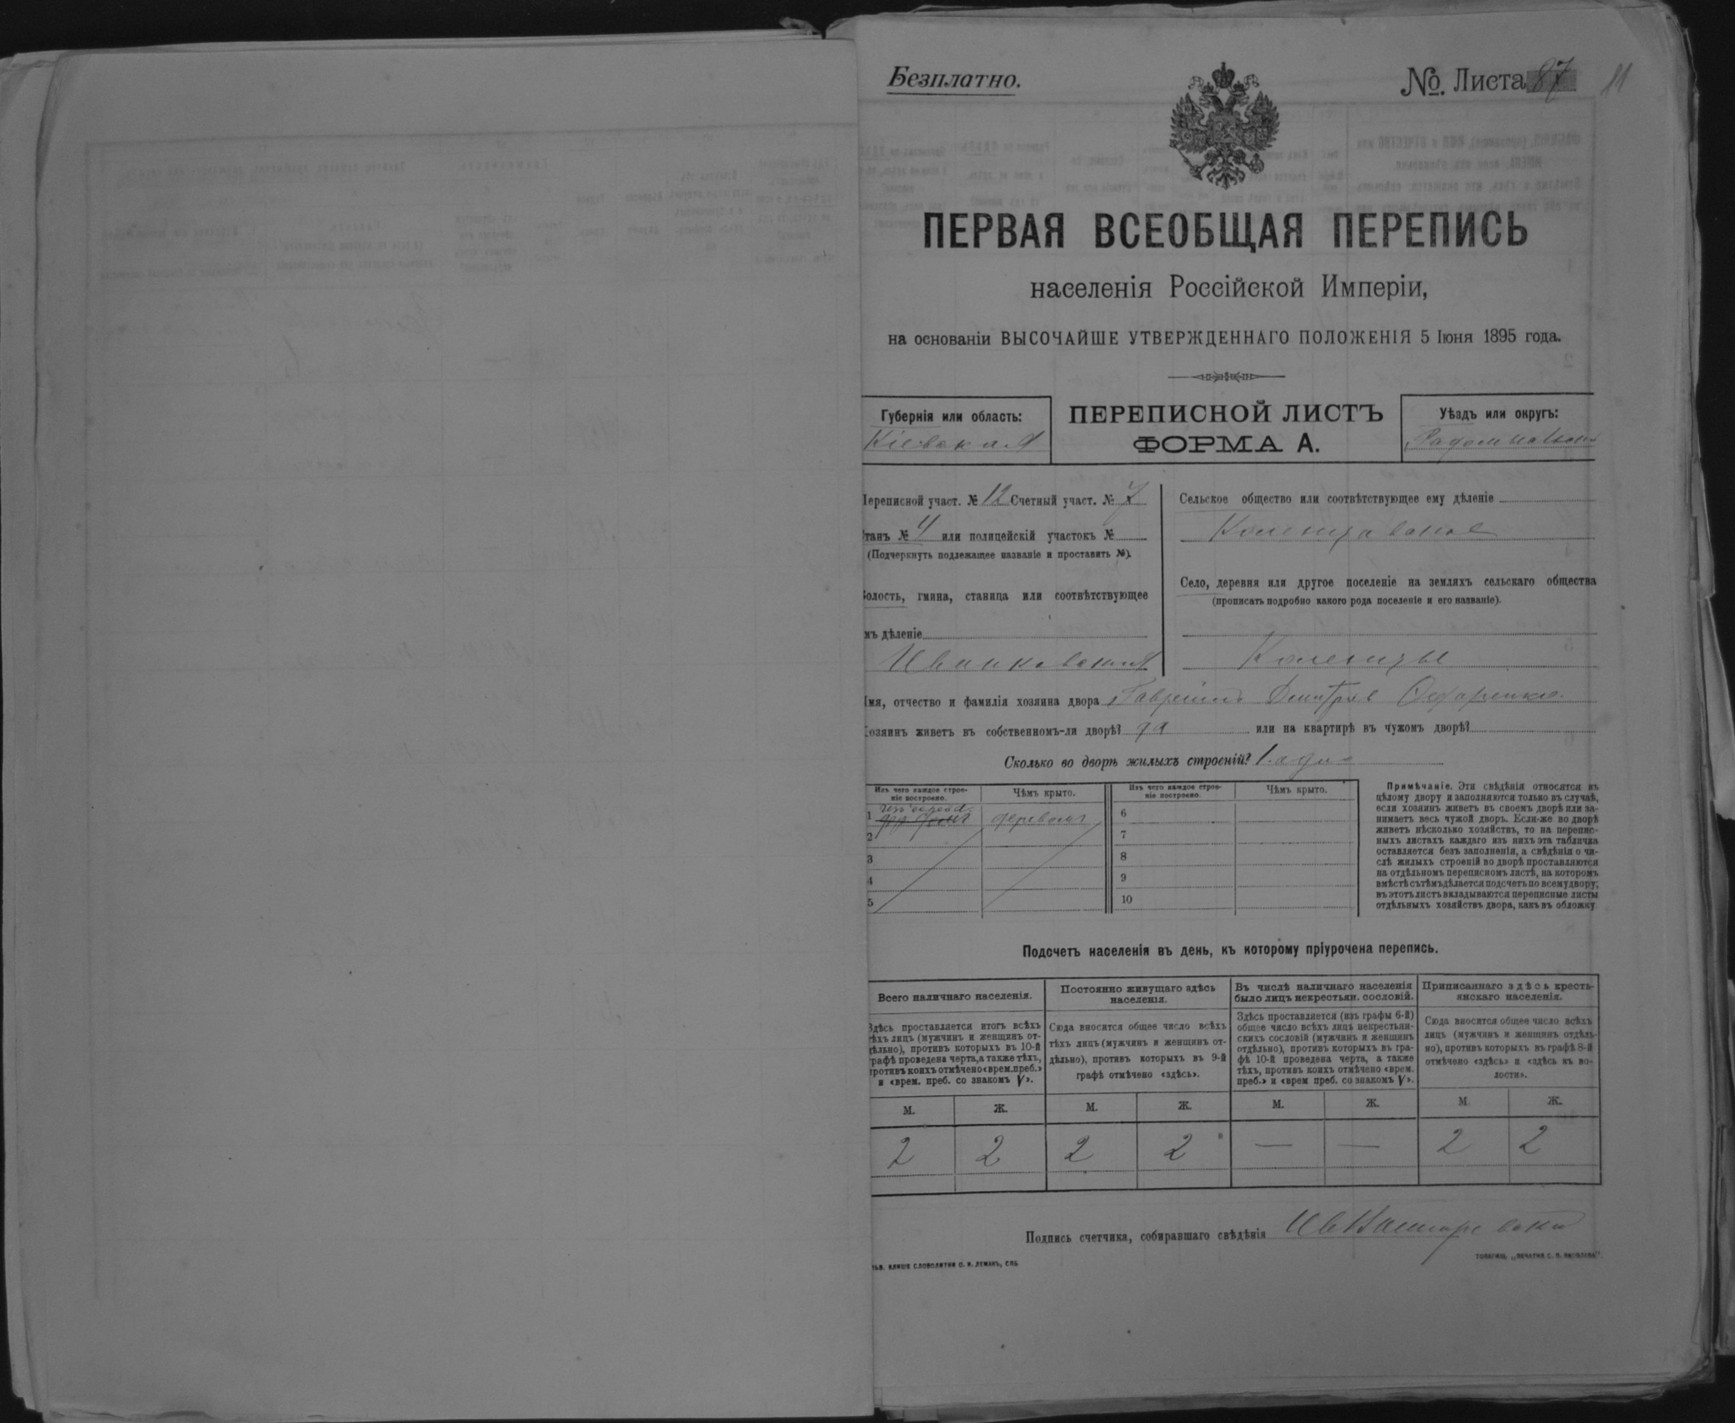 Безплатно.
№ Листа 87
11
ПЕРВАЯ ВСЕОБЩАЯ ПЕРЕПИСЬ
населенія Россійской Имперіи,
на основаніи ВЫСОЧАЙШЕ УТВЕРЖДЕННАГО ПОЛОЖЕНІЯ 5 Іюня 1895 года.
Губернія или область:
Кіевская
ПЕРЕПИСНОЙ ЛИСТЪ
ФОРМА А.
Уѣздъ или округъ:
Радомысльскій
Переписной участ. № 12 Счетный участ. № 7
Станъ № 4 или полицейскій участокъ №
(Подчеркнуть подлежащее названіе и проставить №).
Волость, гмина, станица или соотвѣтствующее
имъ дѣленіе
Иванковская
Сельское общество или соотвѣтствующее ему дѣленіе
Коленцовское
Село, деревня или другое поселеніе на земляхъ сельскаго общества
(прописать подробно какого рода поселеніе и его названіе).
Коленцы
Имя, отчество и фамилія хозяина двора Гавріилъ Дмитріев
Хозяинъ живетъ въ собственномъ-ли дворѣ? да или на квартирѣ въ чужомъ дворѣ?
Сколько во дворѣ жилыхъ строеній? 1
Изъ чего каждое строе-
ніе построено.
Чѣмъ крыто.
Изъ чего каждое строе-
ніе построено.
Чѣмъ крыто.
1
2
3
4
5
6
7
8
9
10
Примѣчаніе. Эти свѣдѣнія относятся къ
цѣлому двору и заполняются только въ случаѣ,
если хозяинъ живетъ въ своемъ дворѣ или за-
нимаетъ весь чужой дворъ. Если-же во дворѣ
живетъ нѣсколько хозяйствъ, то на перепис-
ныхъ листахъ каждаго изъ нихъ эта табличка
оставляется безъ заполненія, а свѣдѣнія о чи-
слѣ жилыхъ строеній во дворѣ проставляются
на отдѣльномъ переписномъ листѣ, на которомъ
вмѣстѣ съ тѣмъ дѣлается подсчетъ по всему двору;
въ этотъ листъ вкладываются переписные листы
отдѣльныхъ хозяйствъ двора, какъ въ обложку
Подсчетъ населенія въ день, къ которому пріурочена перепись.
Всего наличнаго населенія.
Здѣсь проставляется итогъ всѣхъ
тѣхъ лицъ (мужчинъ и женщинъ от-
дѣльно), противъ которыхъ въ 10-й
графѣ проведена черта, а также тѣхъ,
противъ коихъ отмѣчено «врем. преб.»
и «врем. преб. со знакомъ V».
Постоянно живущаго здѣсь
населенія.
Сюда вносится общее число всѣхъ
тѣхъ лицъ (мужчинъ и женщинъ от-
дѣльно), противъ которыхъ въ 9-й
графѣ отмѣчено «здѣсь».
Въ числѣ наличнаго населенія
было лицъ некрестьян. сословій.
Здѣсь проставляется (изъ графы 6-й)
общее число всѣхъ лицъ некрестьян-
скихъ сословій (мужчинъ и женщинъ
отдѣльно), противъ которыхъ въ гра-
фѣ 10-й проведена черта, а также
тѣхъ, противъ коихъ отмѣчено «врем.
преб.» и «врем преб. со знакомъ V».
Приписаннаго здѣсь кресть-
янскаго населенія.
Сюда вносится общее число всѣхъ
лицъ (мужчинъ и женщинъ отдѣль-
но), противъ которыхъ въ графѣ 8-й
отмѣчено «здѣсь» и «здѣсь въ во-
лости».
М. Ж. М. Ж. М. Ж. М. Ж.
2 2 2 2 — — 2 2
Подпись счетчика, собиравшаго свѣдѣнія
КЛИШЕ СЛОВОЛИТНИ О. И. ЛЕМАНЪ, СПБ.
ТОВАРИЩ. „ПЕЧАТНЯ С. П. ЯКОВЛЕВА“